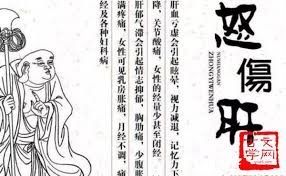 怒傷肝
ZHONGYIWENHUA
肝血亏虚会引起眩晕，视力减退，记忆力下
降，关节酸痛，女性的经量少甚至闭经
肝郁气滞会引起情志抑郁，胸肋痛，少腹胀
满疼痛，女性可见乳房胀痛，月经不调，痛
经及各种妇科病